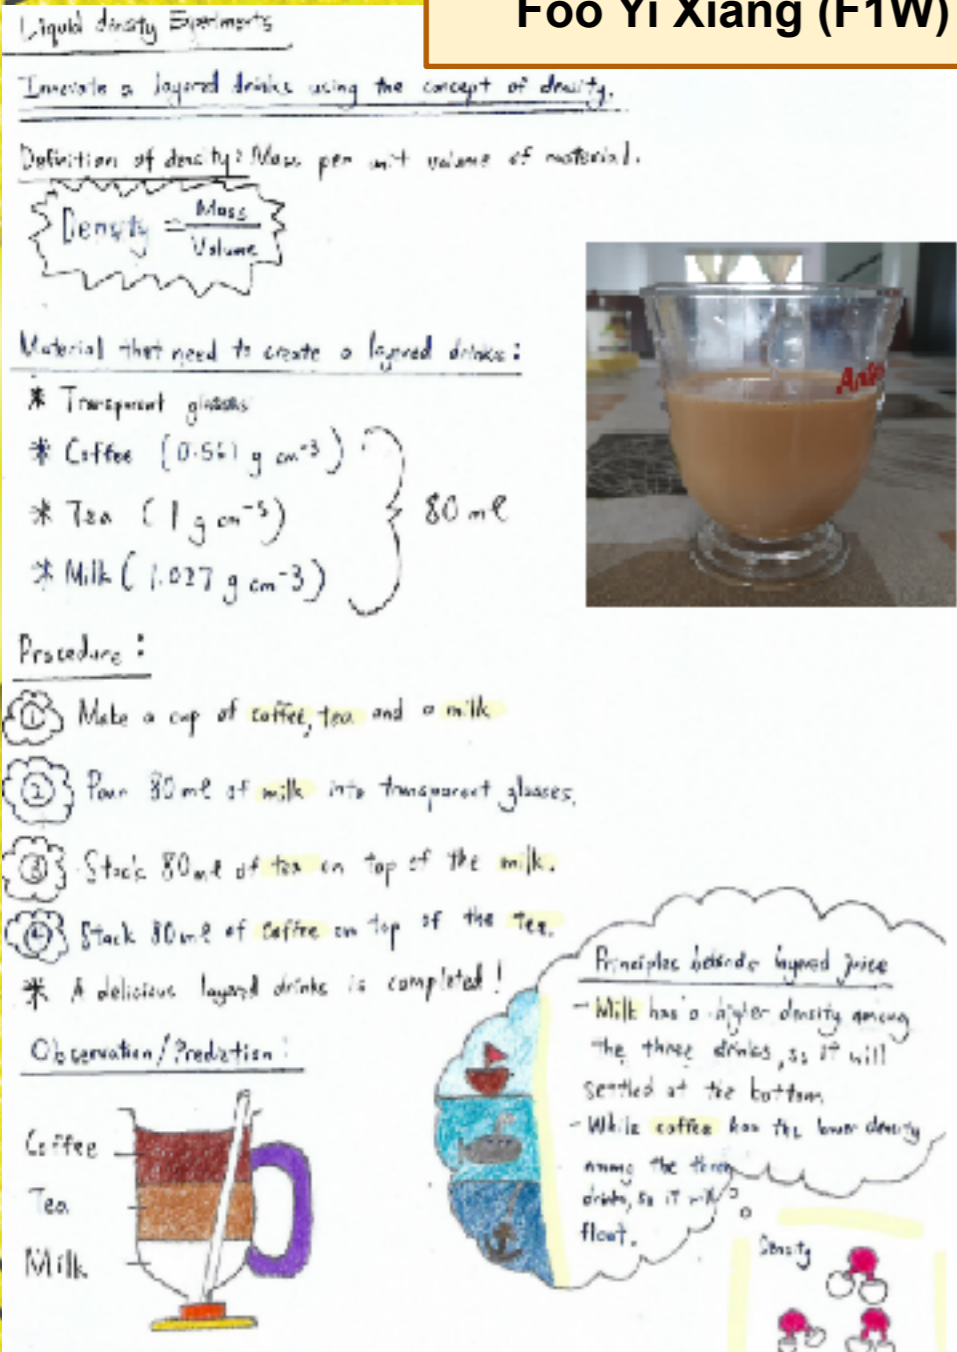 Foo Yi Xiang (F1W)
Liquid density Experiments
Innovate a layered drinks using the concept of density.
Definition of density: Mass per unit volume of material.
Density = Mass
Volume
Material that need to create a layered drinks:
* Transparent glasses
* Coffee (0.561 g cm⁻³)
* Tea (1 g cm⁻³)
80 ml
* Milk (1.027 g cm⁻³)
Procedure:
① Make a cup of coffee, tea and a milk
② Pour 80 ml of milk into transparent glasses.
③ Stack 80 ml of tea on top of the milk.
④ Stack 80 ml of coffee on top of the tea.
* A delicious layered drinks is completed!
Observation/Prediction:
Coffee
Tea
Milk
Principles behinds layered juice
- Milk has a higher density among
the three drinks, so it will
settled at the bottom
- While coffee has the lower density
among the three
drinks, so it will
float.
Density